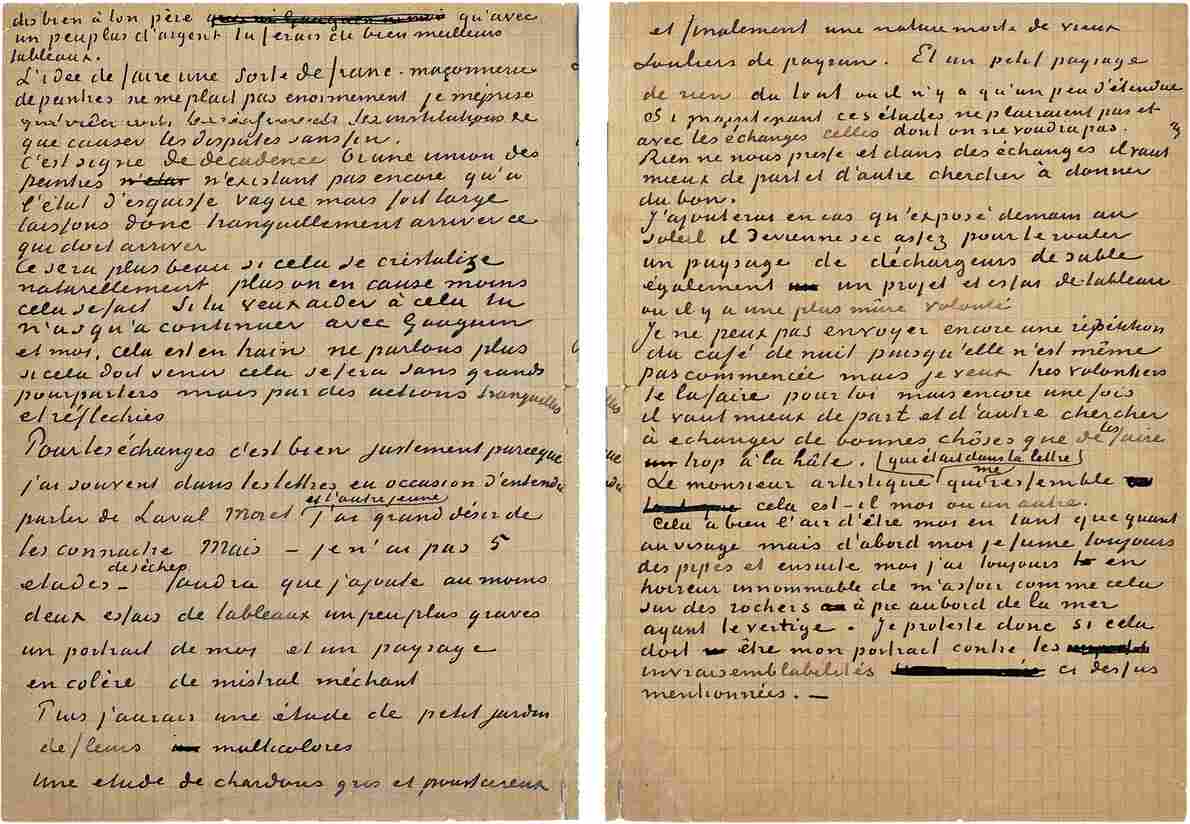 dis bien à ton père qu'avec
un peu plus d'argent tu ferais de bien meilleurs
tableaux.
L'idée de faire une sorte de franc-maçonnerie
de peintres ne me plait pas enormement je méprise
les institutions &c
que causer les disputes sans fin.
C'est signe de décadence. Or une union des
peintres n'etan n'existant pas encore qu'a
l'état d'esquisse vague mais fort large
laissons donc tranquillement arriver ce
qui doit arriver
Ce sera plus beau si cela se cristalize
naturellement, plus on en cause moins
cela se fait Si tu veux aider à cela tu
n'as qu'a continuer avec Gauguin
et moi, cela est en train ne parlons plus
si cela doit venir cela se fera sans grands
pourparlers mais par des actions tranquilles
et réflechies
Pour les échanges c'est bien justement parceque
j'ai souvent dans les lettres eu occasion d'entendre
parler de Laval Moret et l'autre jeune j'ai grand désir de
les connaitre Mais – je n'ai pas 5
etudes de sèches – faudra que j'ajoute au moins
deux essais de tableaux un peu plus graves
un portrait de moi et un paysage
en colère de mistral méchant
Puis j'aurais une étude de petit jardin
de fleurs multicolores
Une etude de chardons gris et poussiereux
et finalement une nature morte de vieux
souliers de paysan. Et un petit paysage
de rien du tout ou il n'y a qu'un peu d'étendue
Si maintenant ces études ne plairaient pas et
avec les échanges celles dont on ne voudra pas.
Rien ne nous presse et dans des échanges il vaut
mieux de part et d'autre chercher à donner
du bon.
J'ajouterai en cas qu'exposé demain au
soleil il devienne sec assez pour le rouler
un paysage de déchargeurs de sable
également un projet et essai de tableau
ou il y a une plus mûre volonté
Je ne peux pas envoyer encore une répétition
du café de nuit puisqu'elle n'est même
pas commencée mais je veux tres volontiers
te la faire pour toi mais encore une fois
il vaut mieux de part et d'autre chercher
à echanger de bonnes chôses que de les faire
trop à la hâte.
Le monsieur artistique (qui était dans ta lettre) qui me ressemble
cela est-il moi ou un autre.
Cela a bien l'air d'être moi en tant que quant
au visage mais d'abord moi je fume toujours
des pipes et ensuite moi j'ai toujours eu
horreur innommable de m'assoir comme cela
sur des rochers à pic au bord de la mer
ayant le vertige. Je proteste donc si cela
doit être mon portrait contre les
invraisemblabilités ci dessus
mentionnées. –